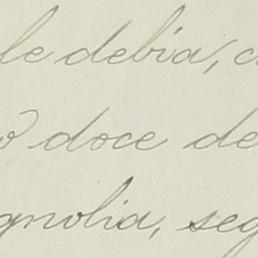 le debia, c
o doce de
gnolia, seg